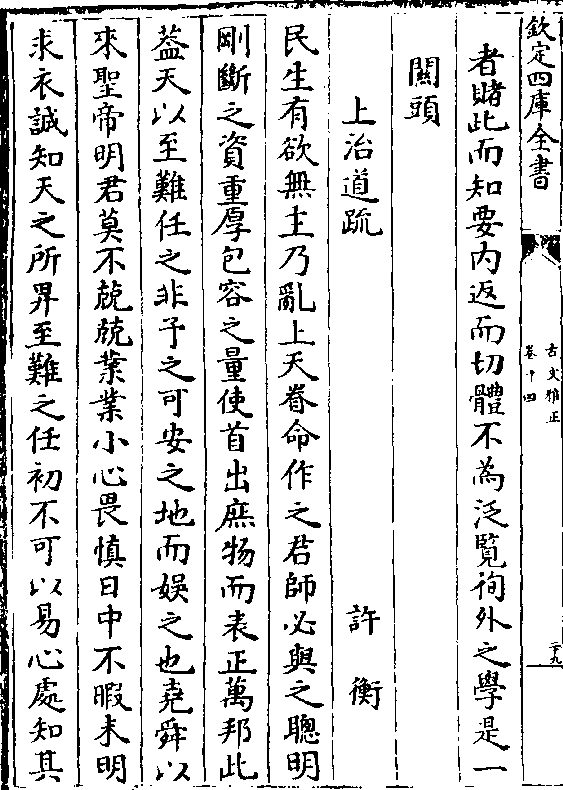 欽定四庫全書
古文雅正
卷十四
二十九
者賭此而知要内返而切體不為泛覽徇外之學是一
關頭
上治道疏
許衡
民生有欲無主乃亂上天眷命作之君師必與之聰明
剛斷之資重厚包容之量使首出庶物而表正萬邦此
葢天以至難任之非予之可安之地而娛之也堯舜以
來聖帝明君莫不兢兢業業小心畏慎日中不暇未明
求衣誠知天之所畀至難之任初不可以易心處知其